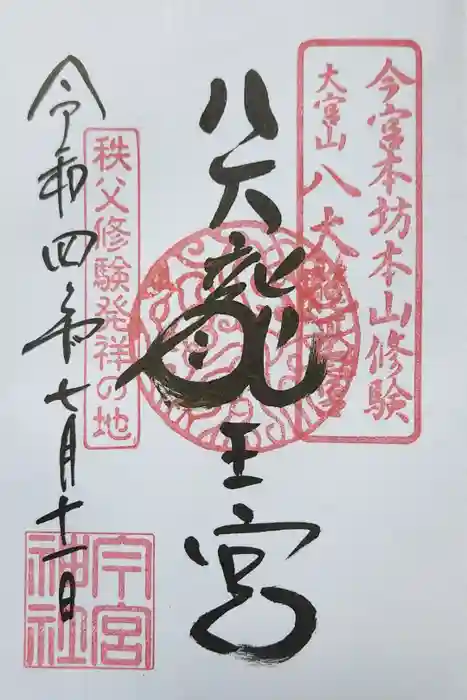 今宮本坊本山修験
大宮山八大龍王宮
八大龍王宮
秩父修験発祥の地
令和四年七月十一日
今宮神社